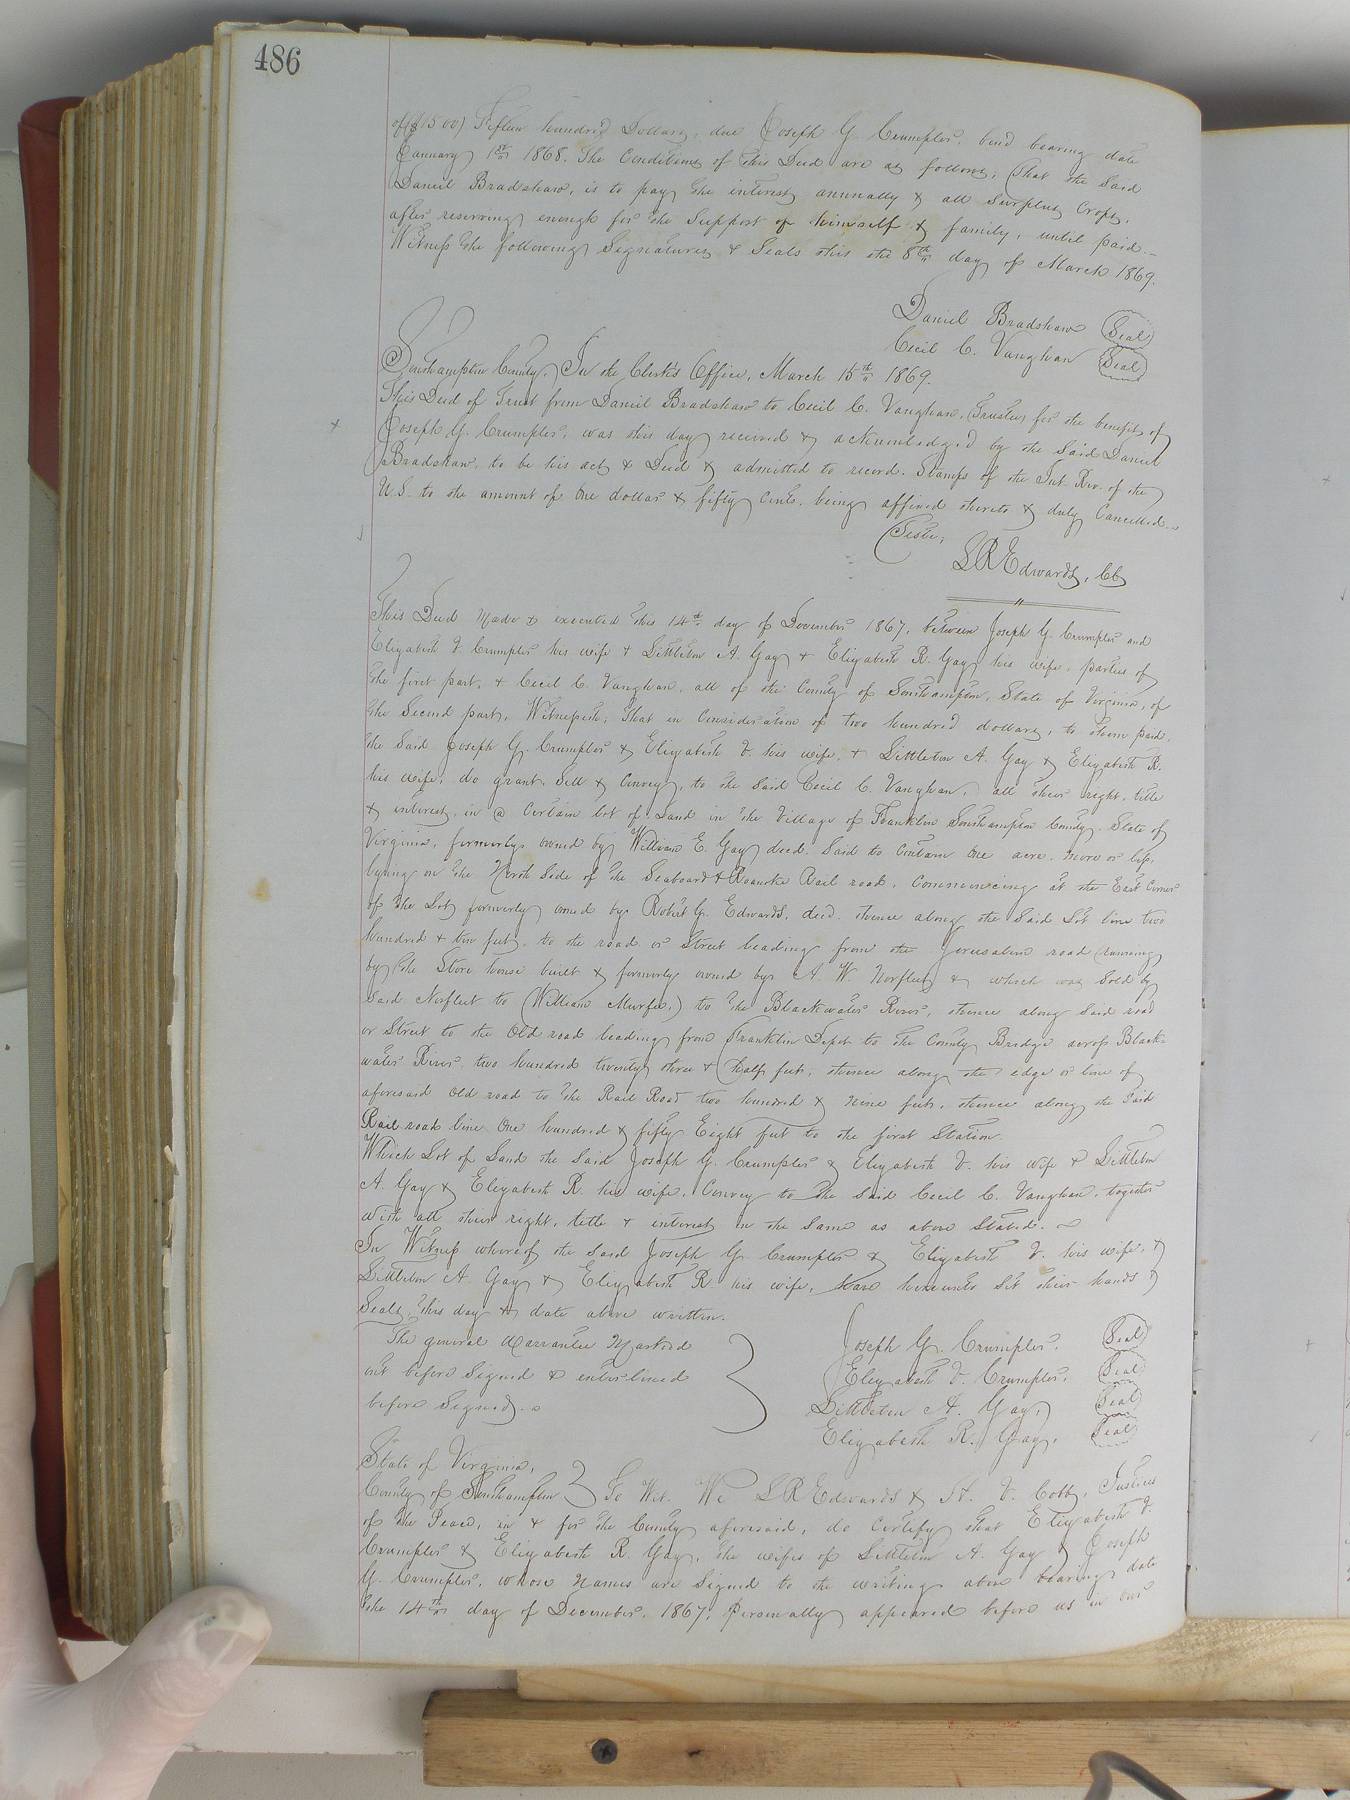 486
of ($1500) Fifteen hundred Dollars, due Joseph G. Crumpler, bond bearing date
January 1st 1868. The Conditions of this Deed are as follows; That the Said
Daniel Bradshaw, is to pay the interest annually & all Surplus Crops,
after reserving enough for the Support of himself & family, until paid.
Witness the following Signatures & Seals this the 8th day of March 1869.
Daniel Bradshaw (Seal)
Cecil C. Vaughan (Seal)
Southampton County, In the Clerk's Office, March 15th 1869.
This Deed of Trust from Daniel Bradshaw to Cecil C. Vaughan, Trustee for the benefit of
Joseph G. Crumpler, was this day received & acknowledged by the Said Daniel
Bradshaw, to be his act & Deed & admitted to record. Stamps of the Int. Rev. of the
U.S. to the amount of One dollar & fifty Cents, being affixed thereto & duly Cancelled.
Teste;
L R Edwards, CC
This Deed Made & executed this 14th day of December 1867, between Joseph G. Crumpler and
Elizabeth V. Crumpler his wife & Littleton A. Gay & Elizabeth R. Gay his wife, parties of
the first part, & Cecil C. Vaughan, all of the County of Southampton, State of Virginia, of
the Second part, Witnesseth; That in Consideration of two hundred dollars, to them paid,
the Said Joseph G. Crumpler & Elizabeth V. his wife, & Littleton A. Gay & Elizabeth R.
his wife, do grant, Sell & Convey, to the Said Cecil C. Vaughan, all their right, title
& interest, in @ Certain lot of Land in the Village of Franklin Southampton County, State of
Virginia, formerly owned by William E. Gay decd. Said to Contain One acre, more or less,
lying on the North Side of the Seaboard & Roanoke Rail road, Commencing at the East Corner
of the Lot formerly owned by Robert G. Edwards, decd. thence along the Said Lot line two
hundred & ten feet, to the road or Street leading from the Jerusalem road (running
by the Store house built & formerly owned by A. W. Norfleet & which was Sold by
Said Norfleet to William Murfee,) to the Blackwater River, thence along Said road
or Street to the Old road leading from Franklin Depot to the County Bridge across Black-
water River, two hundred twenty three & half feet, thence along the edge or line of
aforesaid Old road to the Rail Road two hundred & nine feet, thence along the Said
Rail road line One hundred & fifty Eight feet to the first Station.
Which Lot of Land the Said Joseph G. Crumpler & Elizabeth V. his wife & Littleton
A. Gay & Elizabeth R. his wife, Convey to the Said Cecil C. Vaughan, together
with all their right, title & interest in the Same as above Stated.
In Witness whereof the Said Joseph G. Crumpler & Elizabeth V. his wife, &
Littleton A. Gay & Elizabeth R. his wife, have hereunto Set their hands &
Seals, this day & date above written.
The general Warrantee Marked
out before Signed & interlined
before Signed.
Joseph G. Crumpler, (Seal)
Elizabeth V. Crumpler, (Seal)
Littleton A. Gay, (Seal)
Elizabeth R. Gay, (Seal)
State of Virginia,
County of Southampton To Wit. We L R Edwards & V. Cobb, Justices
of the Peace, in & for the County aforesaid, do Certify that Elizabeth V.
Crumpler & Elizabeth R. Gay, the wifes of Littleton A. Gay & Joseph
G. Crumpler, whose Names are Signed to the writing above bearing date
the 14th day of December, 1867, Personally appeared before us in our